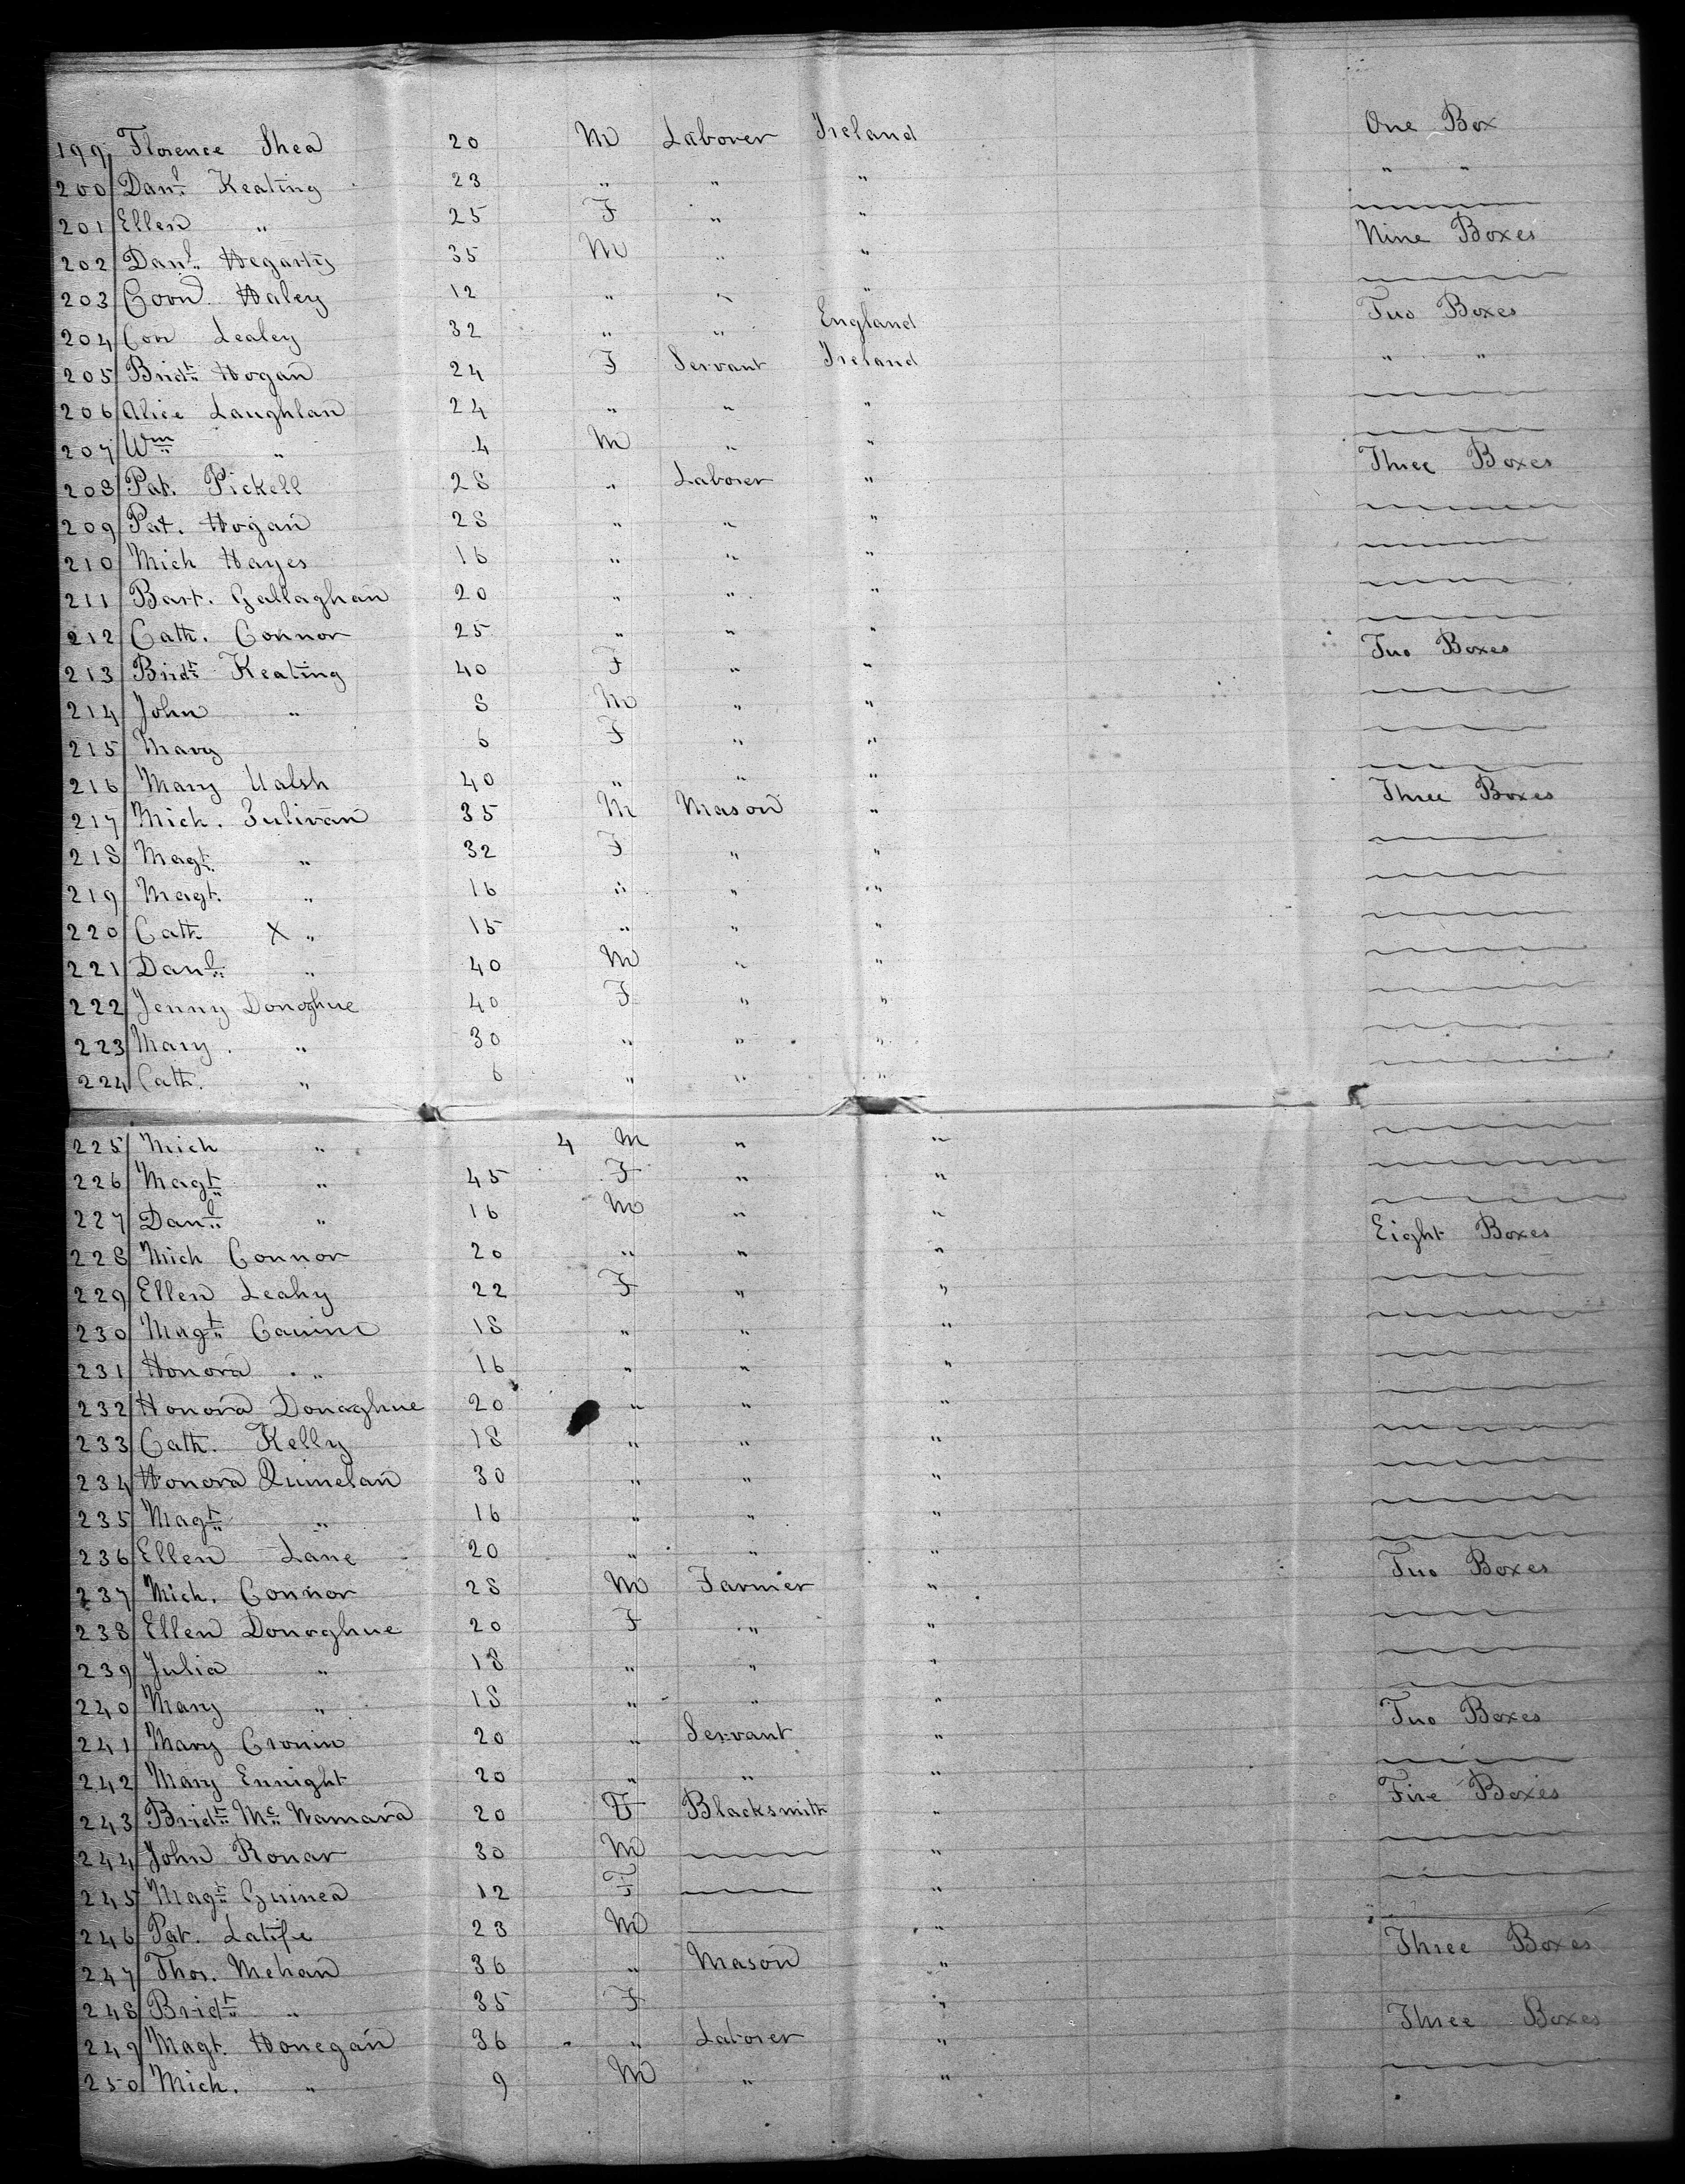 199 Florence Shea 20 M Laborer Ireland One Box
200 Danl. Keating 23 " " " " "
201 Ellen " 25 F " "
202 Danl. Hegarty 35 M " " Nine Boxes
203 Corn Haley 12 " " "
204 Con Lealey 32 " " England Two Boxes
205 Bridt. Hogan 24 F Servant Ireland " "
206 Alice Laughlan 24 " " "
207 Wm " 4 M " "
208 Pat. Pickell 28 " Laborer " Three Boxes
209 Pat. Hogan 28 " " "
210 Mich Hayes 16 " " "
211 Bart. Gallaghan 20 " " "
212 Cath. Connor 25 " " "
213 Bridt. Keating 40 F " " Two Boxes
214 John " 8 M " "
215 Mary 6 F " "
216 Mary Walsh 40 " " "
217 Mich. Sulivan 35 M Mason " Three Boxes
218 Magt. " 32 F " "
219 Magt. " 16 " " "
220 Cath X " 15 " " "
221 Danl. " 40 M " "
222 Jenny Donoghue 40 F " "
223 Mary. " 30 " " "
224 Cath. " 6 " " "
225 Mich " 4 M " "
226 Magt. " 45 F " "
227 Danl. " 16 M " "
228 Mich Connor 20 " " " Eight Boxes
229 Ellen Leahy 22 F " "
230 Magt. 18 " " "
231 Honora " 16 " " "
232 Honora Donaghue 20 " " "
233 Cath. Kelly 18 " " "
234 Honora Quinelan 30 " " "
235 Magt. " 16 " " "
236 Ellen Lane 20 " " "
237 Mich. Connor 28 M Farmer " Two Boxes
238 Ellen Donoghue 20 F " "
239 Julia " 18 " " "
240 Mary " 18 " " "
241 Mary Cronin 20 " Servant " Two Boxes
242 Mary Ennight 20 " " "
243 Bridt. Mc. Namara 20 F Blacksmith " Five Boxes
244 John Ronar 30 M "
245 Magt. Guinea 12 F "
246 Pat. Latife 23 M "
247 Thos. Mehan 36 " Mason " Three Boxes
248 Bridt. " 35 F "
249 Magt. Honegan 36 " Laborer " Three Boxes
250 Mich. " 9 M " "